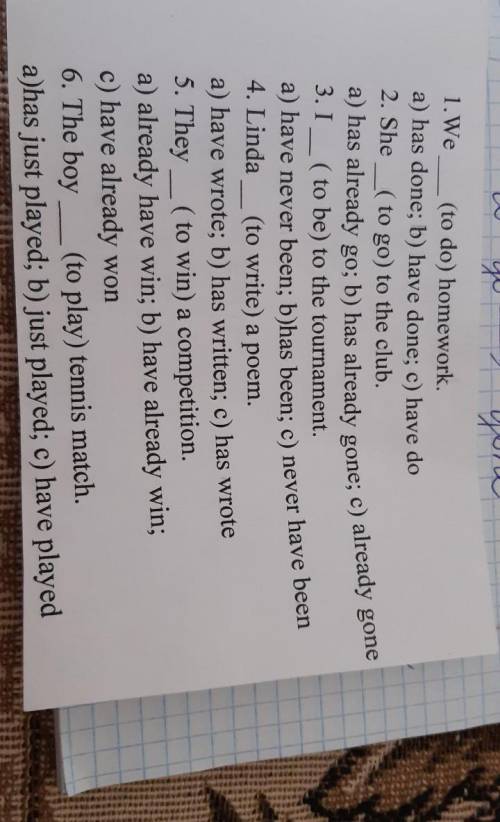 1. We ___ (to do) homework.
a) has done; b) have done; c) have do
2. She __( to go) to the club.
a) has already go; b) has already gone; c) already gone
3. I __ ( to be) to the tournament.
a) have never been; b)has been; c) never have been
4. Linda __ (to write) a poem.
a) have wrote; b) has written; c) has wrote
5. They __ ( to win) a competition.
a) already have win; b) have already win;
c) have already won
6. The boy ___ (to play) tennis match.
a)has just played; b) just played; c) have played